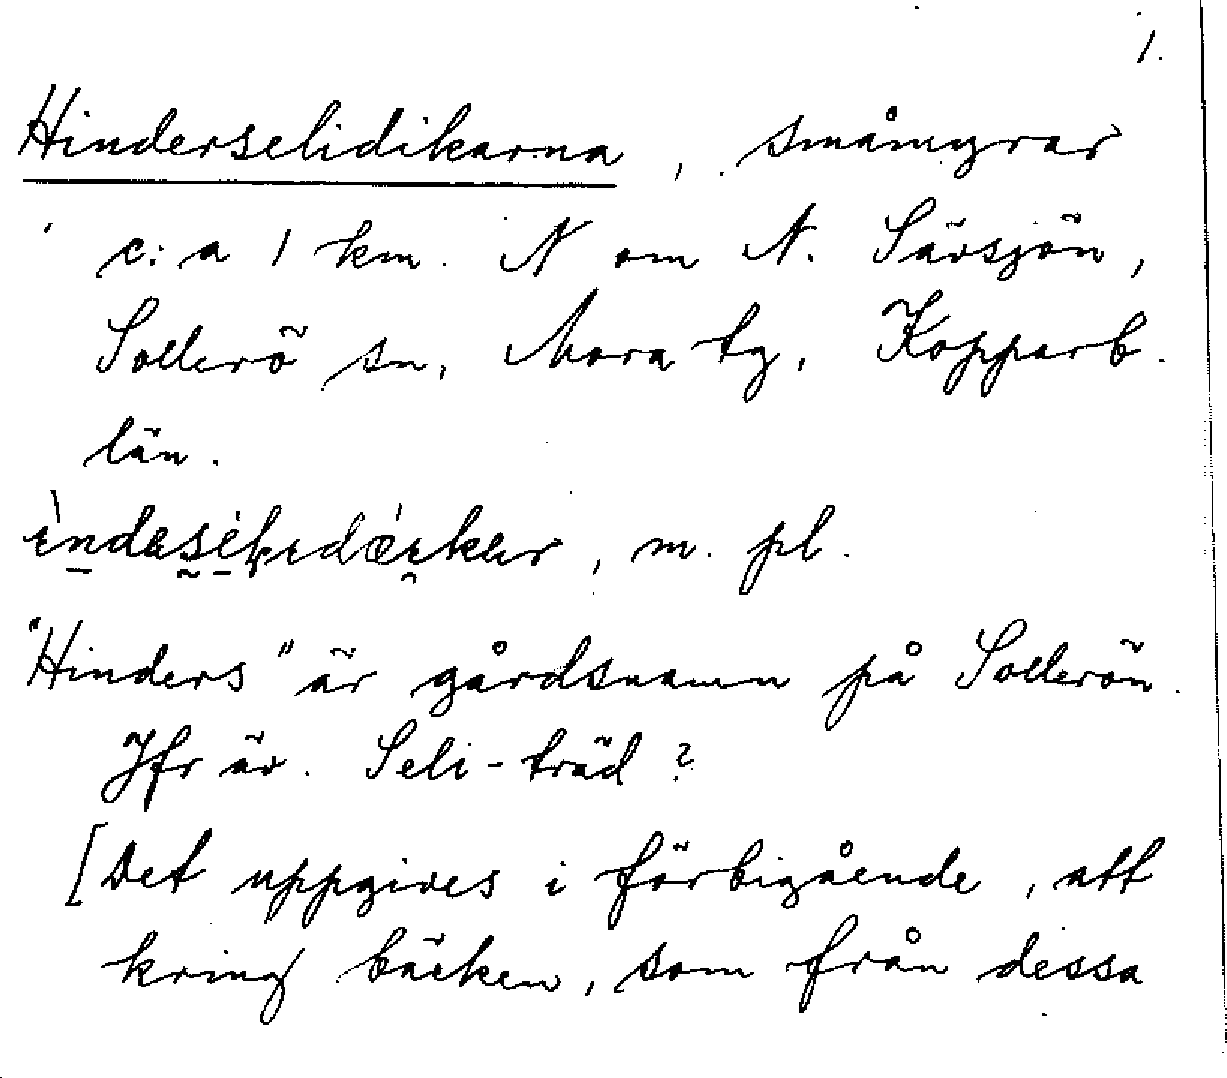 1.
Hinderselidikarna, småmyrar
c:a 1 km. N om N. Särsjön,
Sollerö sn, Mora tg, Kopparb.
län.
, m. pl.
"Hinders" är gårdsnamn på Sollerön.
Jfr äv. Seli-träd?
[Det uppgives i förbigående, att
kring bäcken, som från dessa